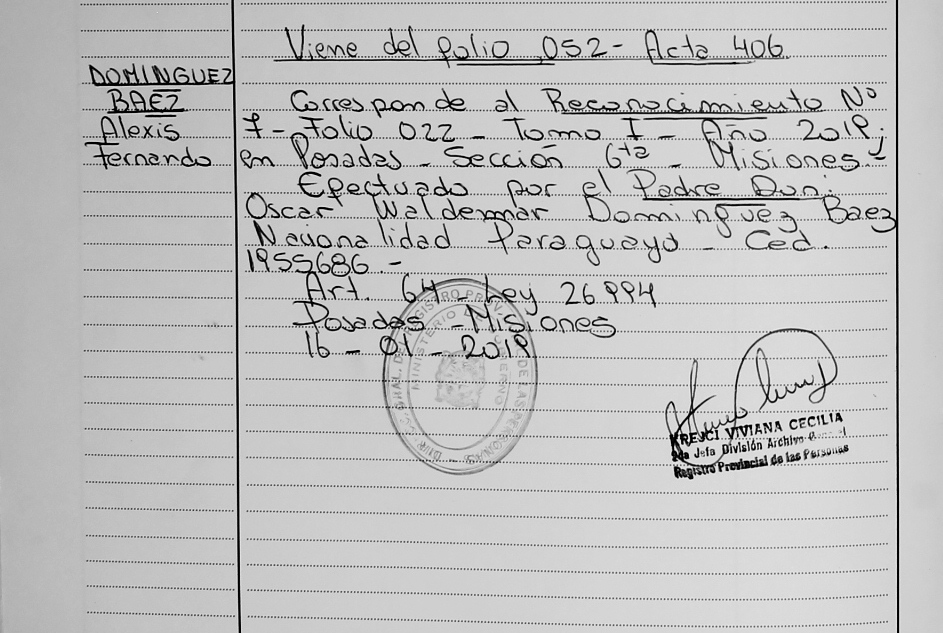 Viene del folio 052 - Acta 406
DOMINGUEZ
BAEZ
Alexis
Fernando
Corresponde al Reconocimiento Nº
7 - Folio 022 - Tomo I - Año 2019;
en Posadas - Sección 6ta - Misiones -
Efectuado por el Padre Don:
Oscar Waldemar Dominguez Baez
Nacionalidad Paraguayo - Ced.
1955686.-
Art. 64 - Ley 26994
Posadas - Misiones
16 - 01 - 2019
KREJCI VIVIANA CECILIA
2da Jefa División Archivo General
Registro Provincial de las Personas
MINISTERIO DE GOBIERNO